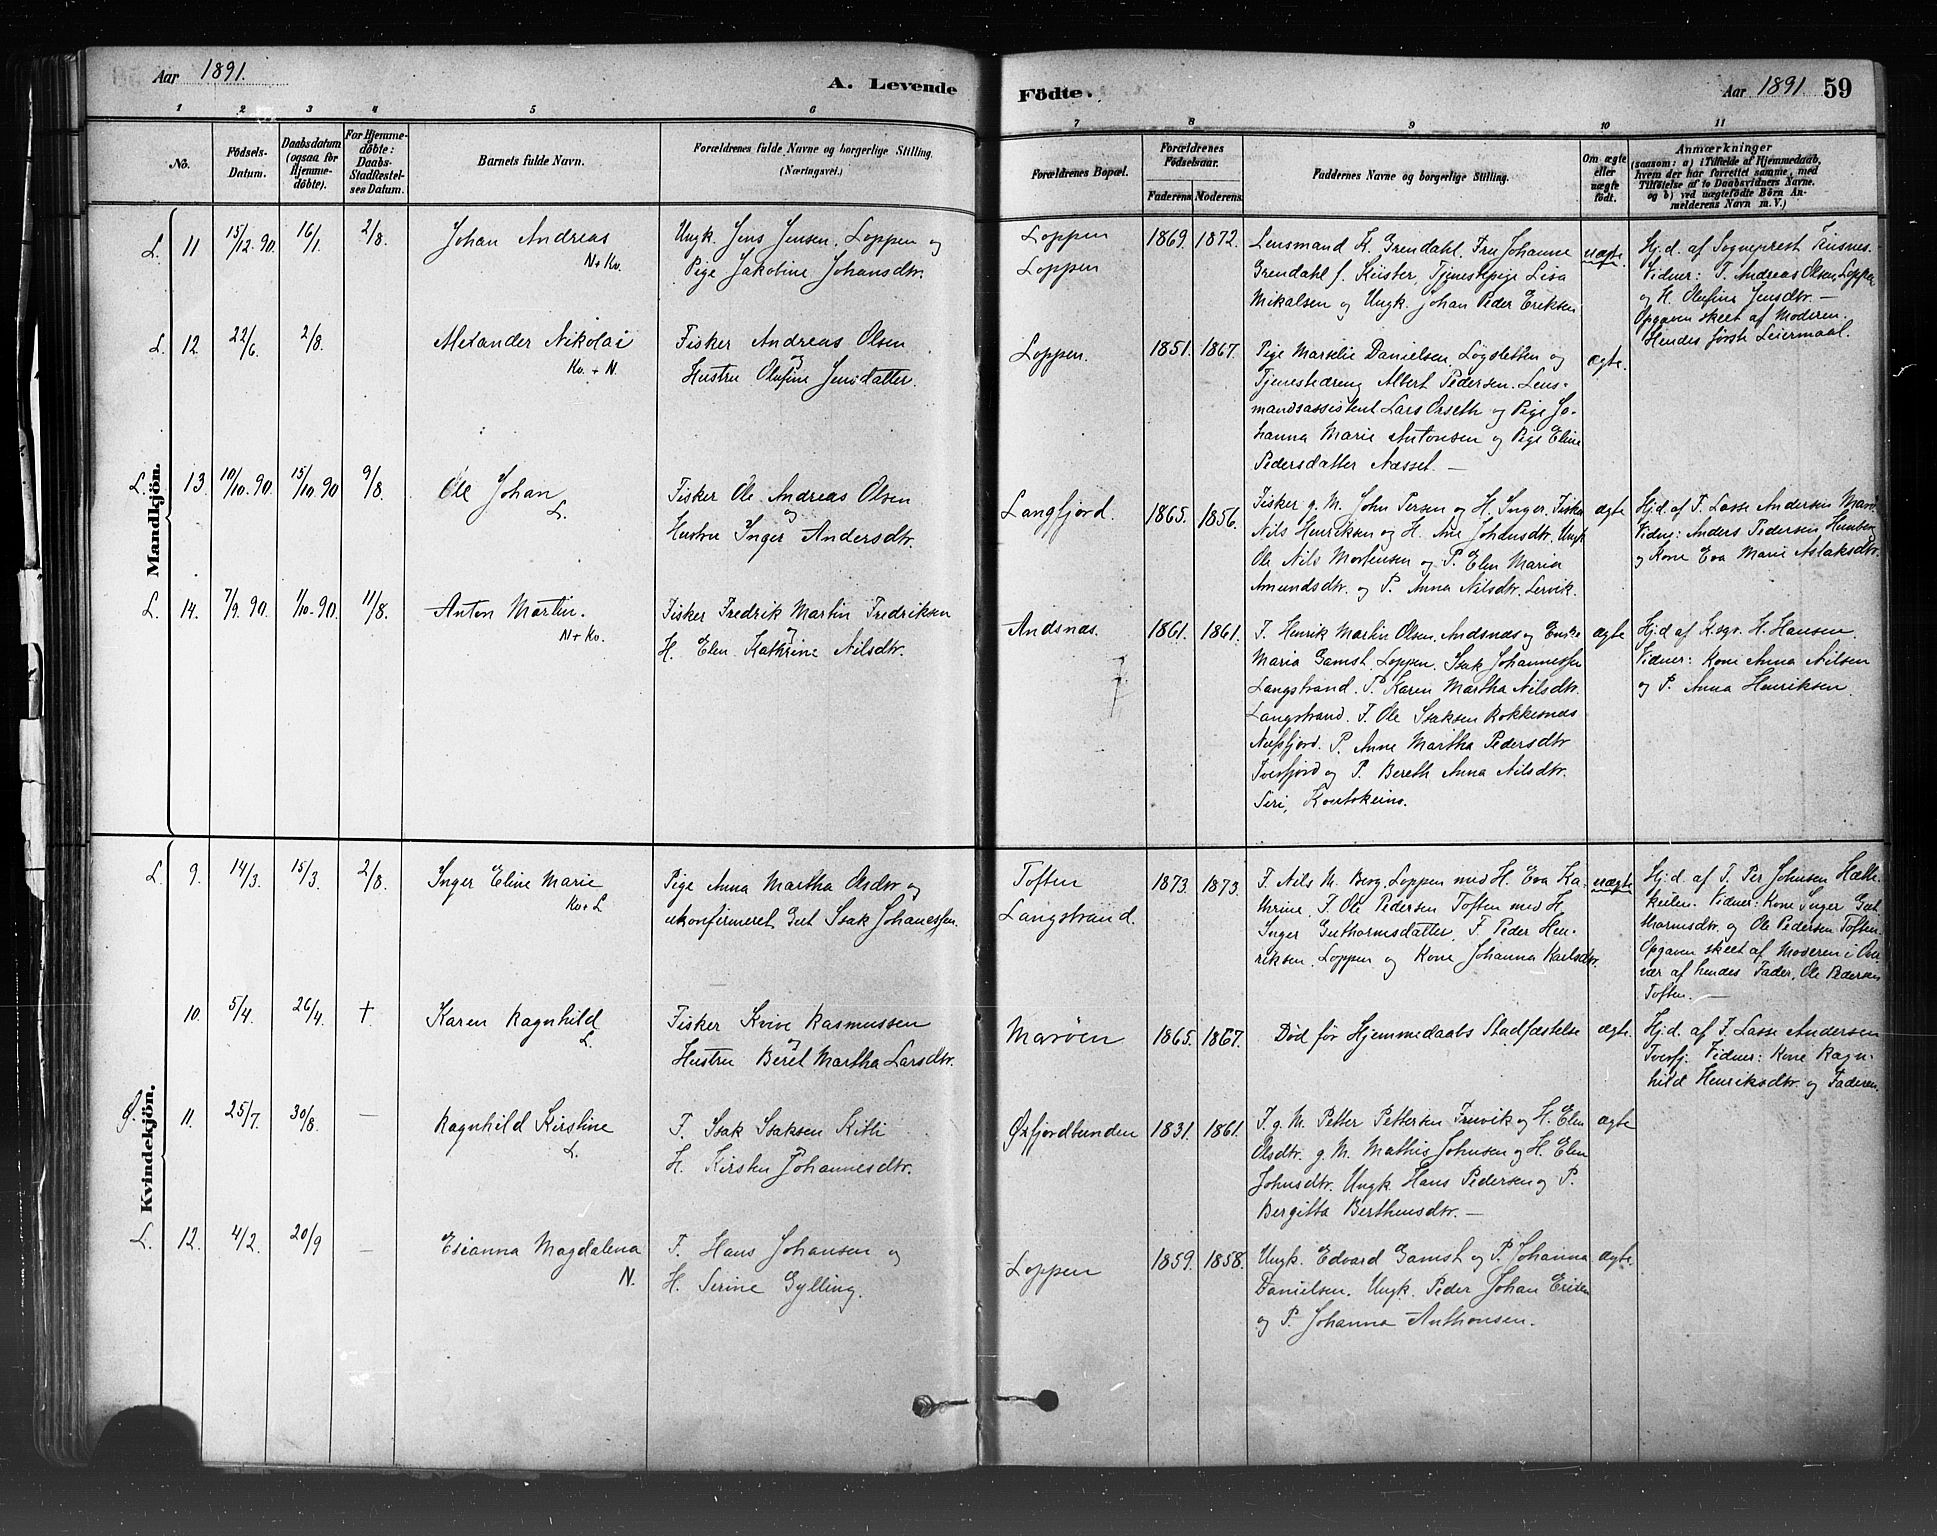 Aar 1891.
A. Levende
1 2 3 4 5 6
No.
Födsels-Datum.
Daabsdatum (ogsaa for Hjemme-döbte).
For Hjemme-döbte: Daabs-Stadfæstel-ses Datum.
Barnets fulde Navn.
Forældrenes fulde Navne og borgerlige Stilling.
(Næringsvei.)
Mandkjön.
L. 11 15/12.90. 16/1. 2/8. Johan Andreas
N + Kv.
Ungk. Jens Jensen, Loppen og
Pige Jakobine Johansdtr.
L. 12. 22/6. 2/8. Alexander Nikolai
Kv. + N.
Fisker Andreas Olsen
og
Hustru Olufine Jensdatter.
L. 13. 10/10.90. 15/10.90 9/8. Ole Johan
L.
Fisker Ole Andreas Olsen
og
Hustru Inger Andersdtr.
L. 14. 7/9.90. 1/10.90. 11/8. Anton Martin.
N + Kv.
Fisker Fredrik Martin Fredriksen
og
H. Elen Kathrine Nilsdtr.
Kvindekjön.
L. 9. 14/3. 15/3. 2/8. Inger Eline Marie
Kv + L
Pige Anna Martha Olsdtr og
ukonfirmeret Gut Isak Johanessen.
10. 5/4. 26/4. †. Karen Ragnhild
L.
Fisker Kvive Rasmussen
og
Hustru Beret Martha Larsdtr.
Ø. 11. 25/7. 30/8. — Ragnhild Kirstine
L.
F. Isak Isaksen Kitti
og
H. Kirsten Johannesdtr.
L. 12. 4/2. 20/9 — Esianna Magdalena
N.
F. Hans Johansen og
H. Serine Gylling.
Födte.
Aar 1891 59
7 8 9 10 11
Forældrenes Bopæl.
Forældrenes Födselsaar.
Faderens. Moderens.
Faddernes Navne og borgerlige Stilling.
Om ægte eller uægte födt.
Anmærkninger
(saasom: a) i Tilfælde af Hjemmedaab,
hvem der har forrettet samme, med
Tilföielse af to Daabsvidners Navne.
og b) ved uægtefödte Börn An-
melderens Navn m. V.)
Loppen
Loppen
1869. 1872.
Lensmand K. Grendahl. Fru Johanne
Grendahl f. Keister, Tjenestepige Lisa
Mikalsen og Ungk. Johan Peder Eriksen
uægte.
Hj.d. af Sogneprest
Vidner: F. Andreas Olsen, Loppen
og H. Olufine Jensdtr. —
Opgaven skeet af Moderen.
Hendes første Leiermaal.
Loppen.
1851. 1867.
Pige Marselie Danielsen, Løgsletten og
Tjenestedreng Albert Pedersen. Lens-
mandsassistent Lars Orseth og Pige Jo-
hanna Marie Antonsen og Pige Eline
Pedersdatter Næsset. —
ægte.
Langfjord.
1865. 1856.
Fisker g. M. John Persen og H. Inger. Fisker
Nils Henriksen og H. Ane Johnsdtr. Ungk
Ole Nils Mortensen og P. Elen Maria
Amundsdtr. og P. Anna Nilsdtr. Lervik.
ægte
Hj.d. af F. Lasse Andersen
Vidner: Anders Pedersen
og Kone Eva Marie Aslaksdtr.
Andsnæs.
1861. 1861.
F. Henrik Martin Olsen, Andsnæs og Enke
Maria Gamst, Loppen. Isak Johannessen
Langstrand. P. Karen Martha Nilsdtr.
Langstrand. F. Ole Isaksen Bokkesnæs
Nufsfjord. P. Anne Martha Pedersdtr
Tverfjord og P. Bereth Anna Nilsdtr.
Siri, Koutokeino.
ægte
Hj.d af K.sgr. H. Hansen.
Vidner: Kone Anna Nilsen
og P. Anna Henriksen.
Toften
Langstrand.
1873. 1873.
F. Nils M. Berg, Loppen med H. Eva Ka-
thrine. F. Ole Pedersen Toften med H.
Inger Guthormsdatter, F. Peder Hen-
riksen, Loppen og Kone Johanna Karlsdtr.
uægte
Hj.d. af F. Per Johnsen
Vidner: Kone Inger Gut-
thormsdtr. og Ole Pedersen Toften.
Opgaven skeet af Moderen i Ov-
vær af hendes Fader, Ole Pedersen
Toften. —
Marøen
1865. 1867.
Død før Hjemmedaabs Stadfæstelse
ægte.
Hj.d. af F. Lasse Andersen
Tverfj. Vidner: Kone Ragn-
hild Henriksdtr. og Faderen.
Øxfjordbunden
1831. 1861.
F. g. M. Petter Pettersen og H. Elen
Olsdtr. g. M. Mathis Johnsen og H. Elen
Johnsdtr. Ungk Hans Pedersen og P.
Bergitta Berthensdtr. —
ægte
Loppen
1859. 1858.
Ungk. Edvard Gamst og P. Johanna
Danielsen. Ungk. Peder Johan Eriksen
og P. Johanna Anthonsen.
ægte.